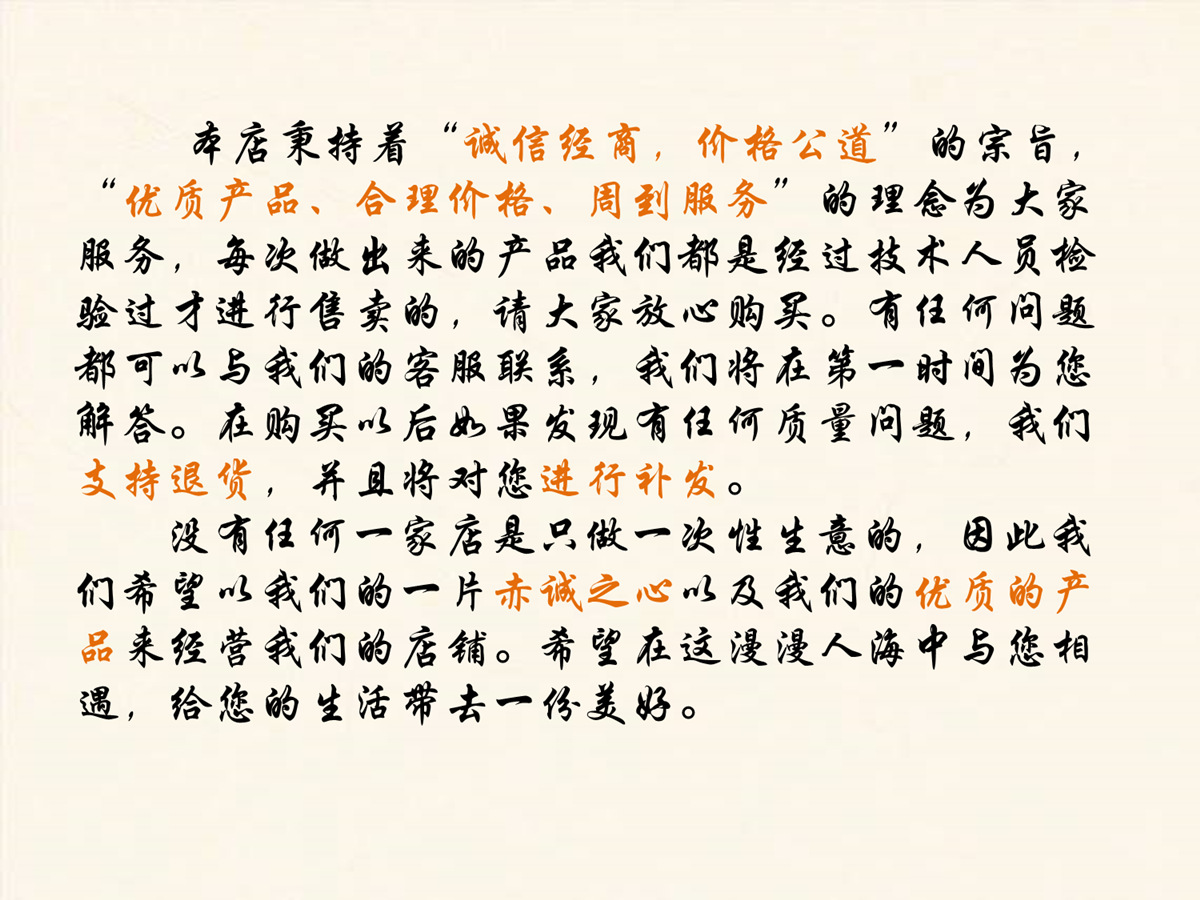 本店秉持着“诚信经商，价格公道”的宗旨，
“优质产品、合理价格、周到服务”的理念为大家
服务，每次做出来的产品我们都是经过技术人员检
验过才进行售卖的，请大家放心购买。有任何问题
都可以与我们的客服联系，我们将在第一时间为您
解答。在购买以后如果发现有任何质量问题，我们
支持退货，并且将对您进行补发。
没有任何一家店是只做一次性生意的，因此我
们希望以我们的一片赤诚之心以及我们的优质的产
品来经营我们的店铺。希望在这漫漫人海中与您相
遇，给您的生活带去一份美好。